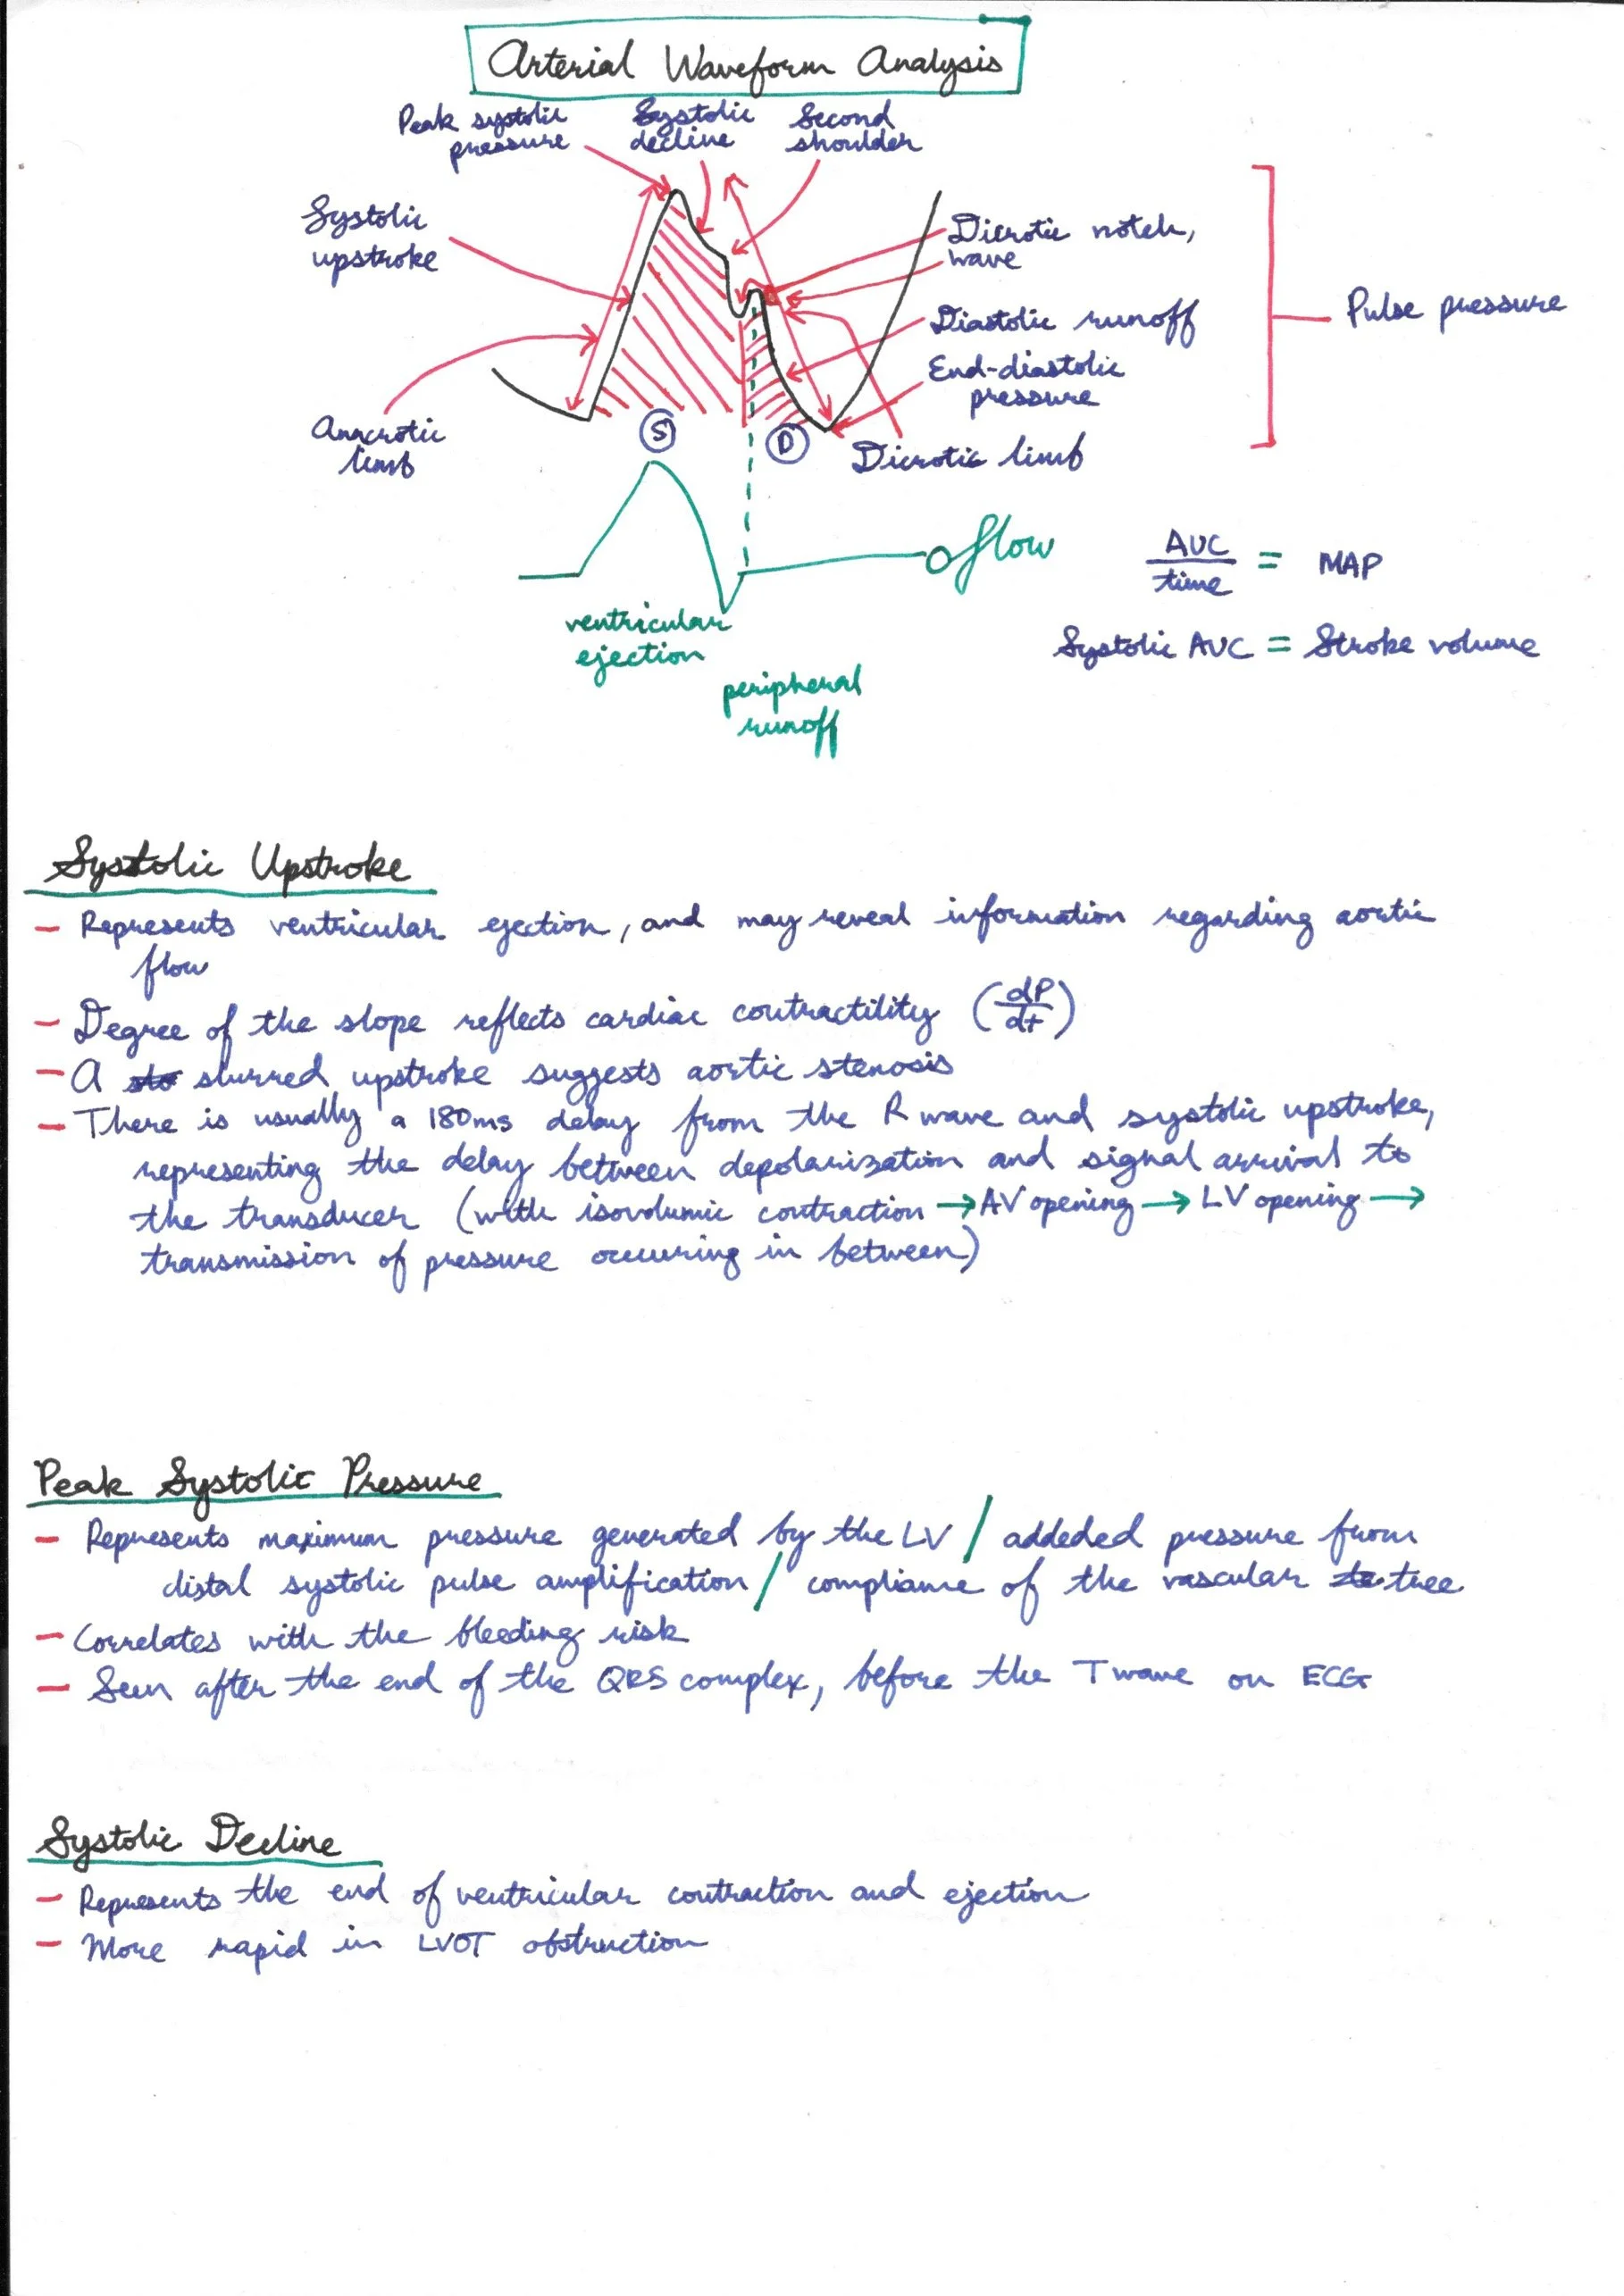 Arterial Waveform Analysis
Peak systolic
pressure
Systolic
decline
Second
shoulder
Systolic
upstroke
Dicrotic notch,
wave
Pulse pressure
Diastolic runoff
End-diastolic
pressure
Anacrotic
limb
S
D
Dicrotic limb
flow
AUC
time
= MAP
ventricular
ejection
Systolic AUC = Stroke volume
peripheral
runoff
Systolic Upstroke
- Represents ventricular ejection, and may reveal information regarding aortic
flow
- Degree of the slope reflects cardiac contractility (dP/dt)
- A slurred upstroke suggests aortic stenosis
- There is usually a 180ms delay from the R wave and systolic upstroke,
representing the delay between depolarization and signal arrival to
the transducer (with isovolumic contraction → AV opening → LV opening →
transmission of pressure occuring in between)
Peak Systolic Pressure
- Represents maximum pressure generated by the LV / addeded pressure from
distal systolic pulse amplification / compliance of the vascular tree
- Correlates with the bleeding risk
- Seen after the end of the QRS complex, before the T wave on ECG
Systolic Decline
- Represents the end of ventricular contraction and ejection
- More rapid in LVOT obstruction